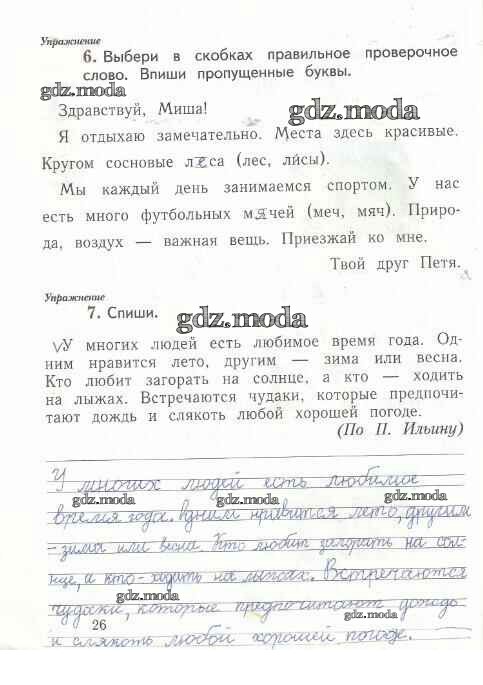 Упражнение
6. Выбери в скобках правильное проверочное
слово. Впиши пропущенные буквы.
gdz.moda
Здравствуй, Миша!
gdz.moda
Я отдыхаю замечательно. Места здесь красивые.
Кругом сосновые леса (лес, ли́сы).
Мы каждый день занимаемся спортом. У нас
есть много футбольных мячей (меч, мяч). Приро-
да, воздух — важная вещь. Приезжай ко мне.
Твой друг Петя.
Упражнение
7. Спиши.
gdz.moda
У многих людей есть любимое время года. Од-
ним нравится лето, другим — зима или весна.
Кто любит загорать на солнце, а кто — ходить
на лыжах. Встречаются чудаки, которые предпочи-
тают дождь и слякоть любой хорошей погоде.
(По П. Ильину)
У многих людей есть любимое
gdz.moda gdz.moda gdz.moda
время года. Одним нравится лето, другим
- зима или весна. Кто любит загорать на сол-
нце, а кто - ходить на лыжах. Встречаются
gdz.moda
чудаки, которые предпочитают дождь
26
gdz.moda
и слякоть любой хорошей погоде.